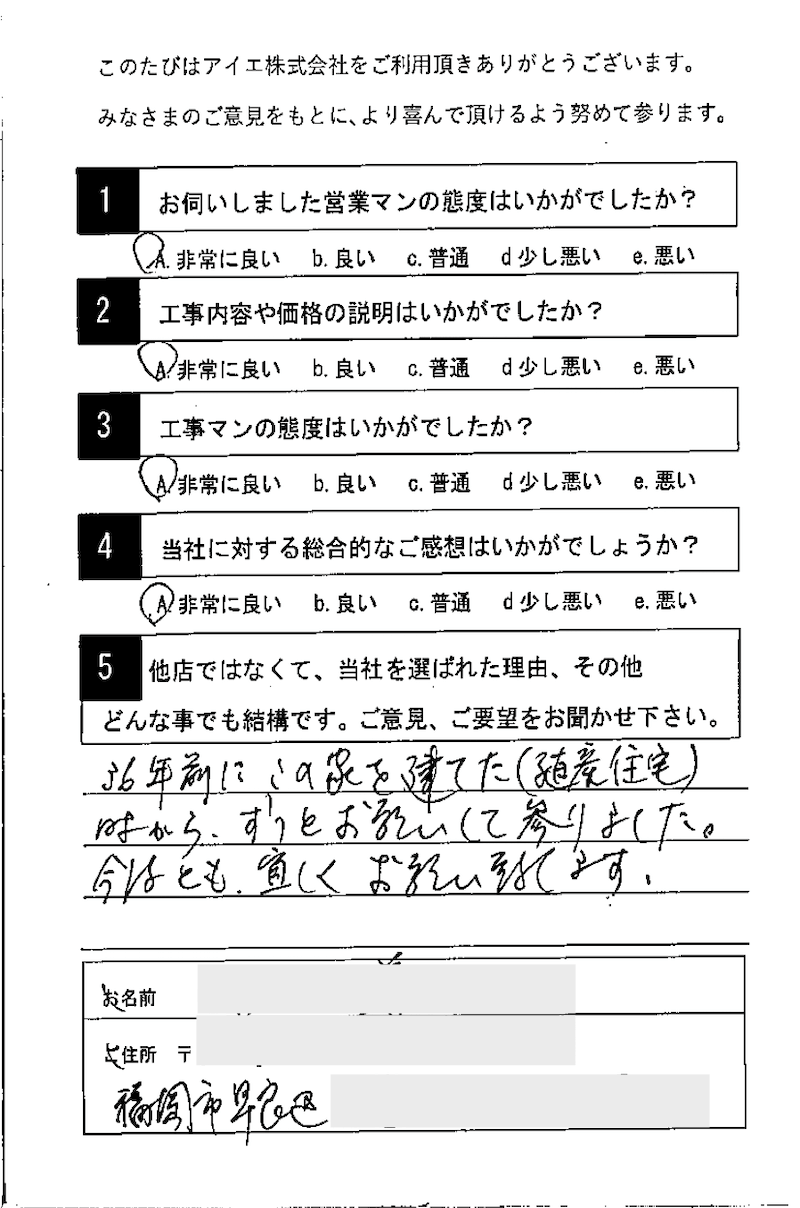 このたびはアイエ株式会社をご利用頂きありがとうございます。
みなさまのご意見をもとに、より喜んで頂けるよう努めて参ります。
1 お伺いしました営業マンの態度はいかがでしたか？
A. 非常に良い b. 良い c. 普通 d 少し悪い e. 悪い
2 工事内容や価格の説明はいかがでしたか？
A. 非常に良い b. 良い c. 普通 d 少し悪い e. 悪い
3 工事マンの態度はいかがでしたか？
A. 非常に良い b. 良い c. 普通 d 少し悪い e. 悪い
4 当社に対する総合的なご感想はいかがでしょうか？
A. 非常に良い b. 良い c. 普通 d 少し悪い e. 悪い
5 他店ではなくて、当社を選ばれた理由、その他
どんな事でも結構です。ご意見、ご要望をお聞かせ下さい。
36年前にこの家を建てた(殖産住宅)
時から、ずっとお願いして参りました。
今後とも、宜しくお願い致します。
お名前
ご住所 〒
福岡市早良区